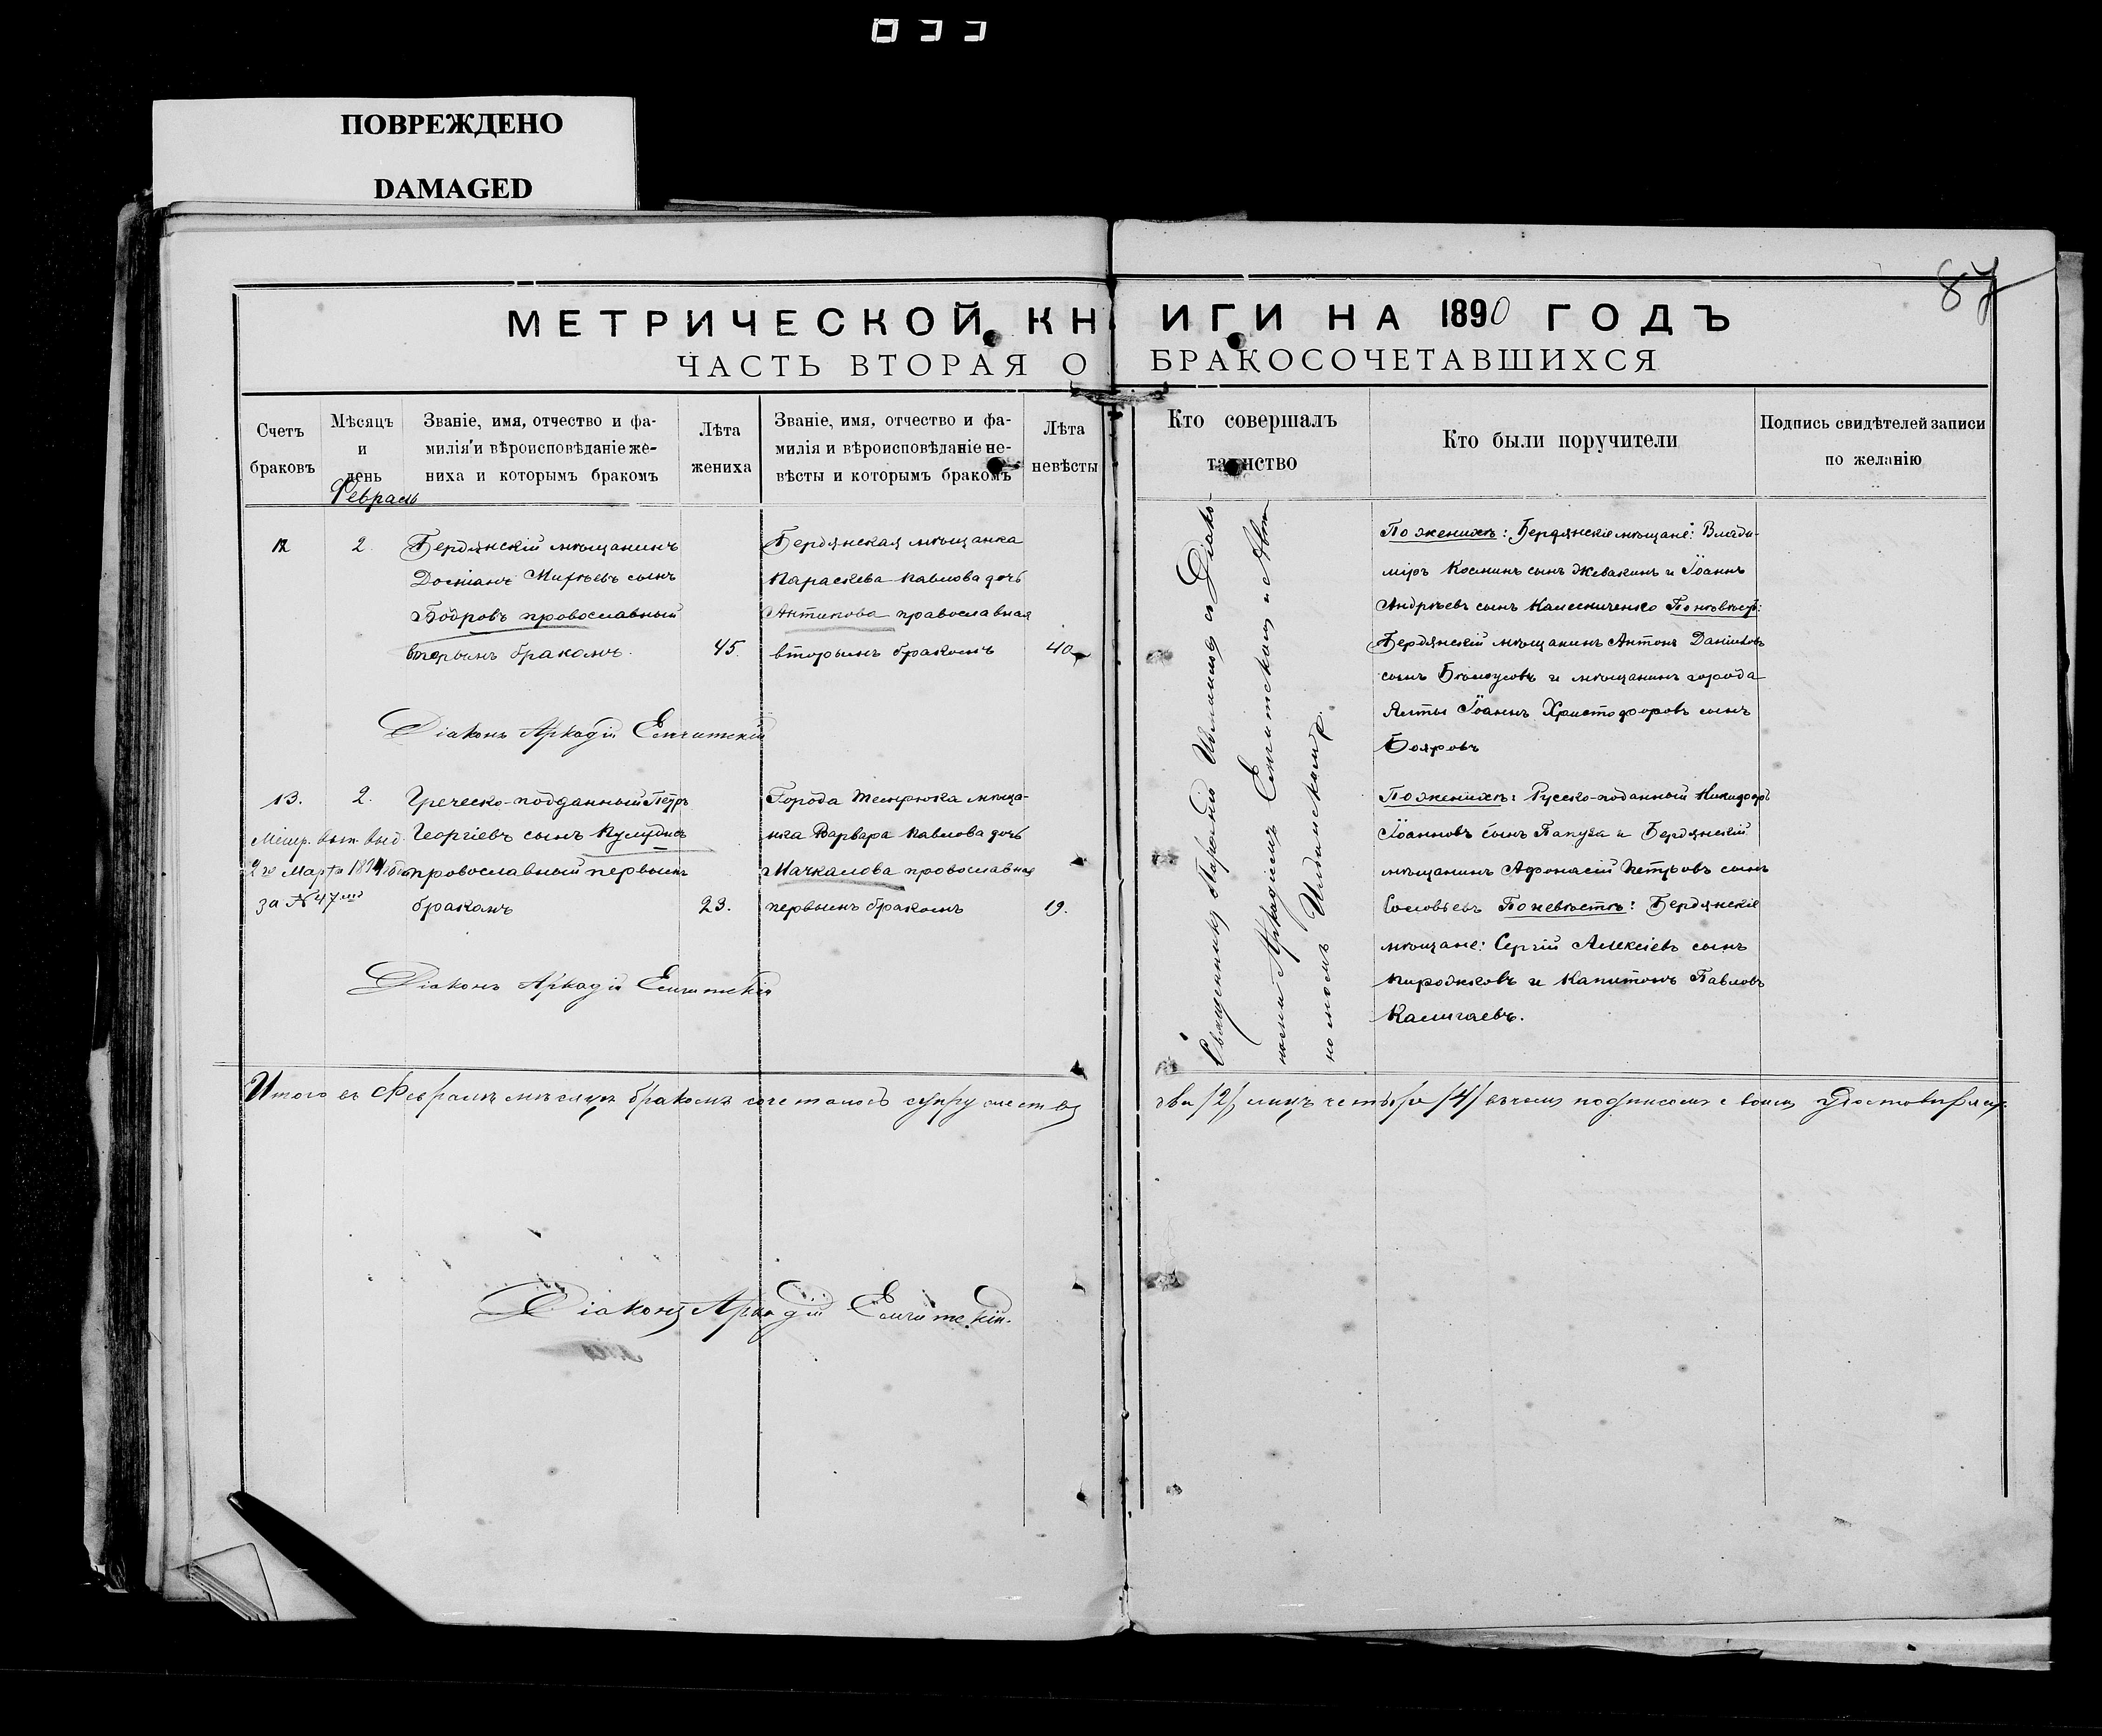 ПОВРЕЖДЕНО
DAMAGED
87
МЕТРИЧЕСКОЙ КНИГИ НА 1890 ГОДЪ
ЧАСТЬ ВТОРАЯ О БРАКОСОЧЕТАВШИХСЯ
Счетъ браковъ
Мѣсяцъ и день
Званіе, имя, отчество и фа-
милія и вѣроисповѣданіе же-
ниха и которымъ бракомъ
Лѣта жениха
Званіе, имя, отчество и фа-
милія и вѣроисповѣданіе не-
вѣсты и которымъ бракомъ
Лѣта невѣсты
Кто совершалъ таинство
Кто были поручители
Подпись свидѣтелей записи
по желанію
Февраль
12
2.
Бердянскій мѣщанинъ
сынъ
Бодровъ провославный
вторымъ бракомъ.
45.
Бердянская мѣщанка
Параскева Павлова дочь
Антипова православная
вторымъ бракомъ
40
Діаконъ Аркадій
По женихѣ: Бердянскіе мѣщане: Влади-
міръ Косминъ сынъ Жевакинъ и Іоаннъ
Андрѣевъ сынъ Калесниченко По невѣстѣ:
Бердянскій мѣщанинъ Антонъ Даніиловъ
сынъ Бѣлоусовъ и мѣщанинъ города
Ялты Іоаннъ Христофоровъ сынъ
Бояровъ
13.
2.
Метр. вып. выд.
2го Марта
за № 47
Греческо-подданный Петръ
Георгіевъ сынъ
провославный первымъ
бракомъ
23.
Города Темрюка мѣща-
нка Варвара Павлова дочь
Мачкалова провославная
первымъ бракомъ
19.
Діаконъ Аркадій
По женихѣ: Русско-поданный Никифоръ
Іоанновъ сынъ Папуза и Бердянскій
мѣщанинъ Афонасій Петровъ сынъ
Соловьевъ По невѣстѣ: Бердянскіе
мѣщане: Сергій Алексіевъ сынъ
Пирожковъ и Капитонъ Павловъ
Калигаевъ.
Священникъ
Итого въ Февралѣ мѣсяцѣ бракомъ сочеталось супружества
два /2/ лицъ четыре /4/ въ чемъ подписомъ своимъ удостовѣряемъ
Діаконъ Аркадій